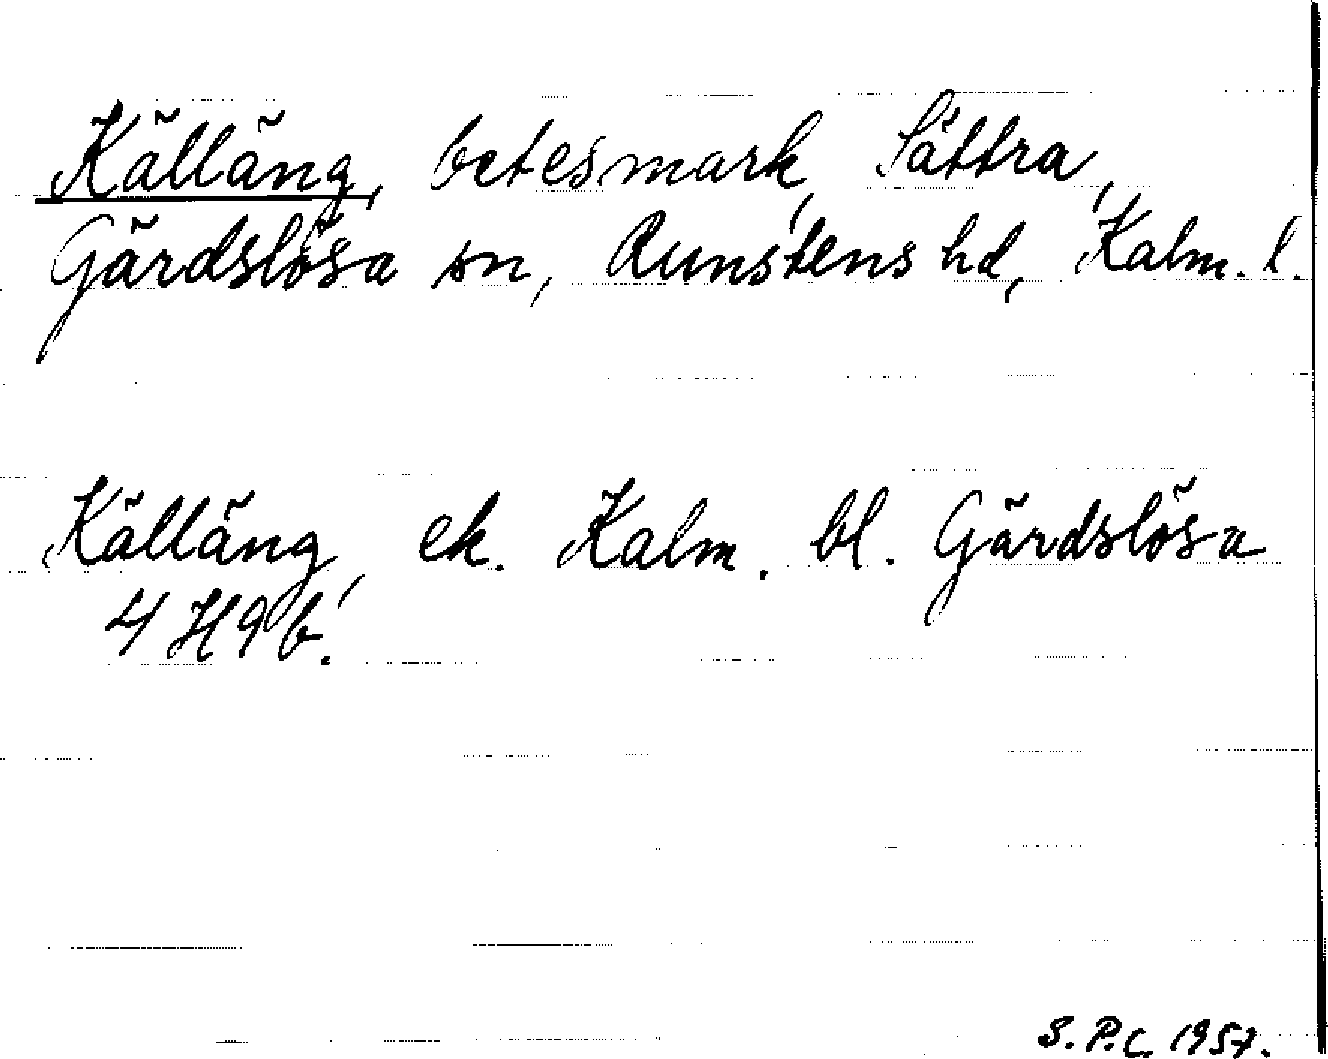 Källäng, betesmark, Sättra,
Gärdslösa sn, Runstens hd, Kalm. l.
Källäng, ek. Kalm. bl. Gärdslösa
4 H 9 b.
S. P. C. 1957.